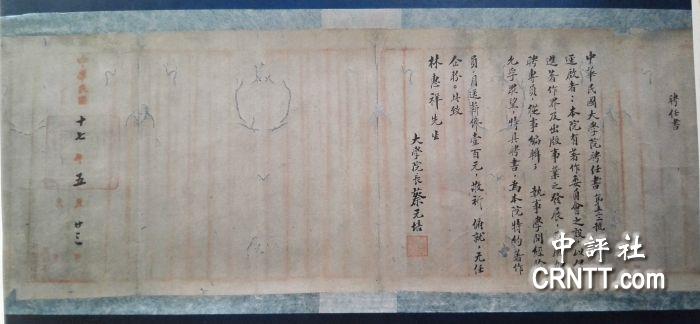 聘任書
中華民國大學院聘任書第五三號
逕啟者:本院有著作委員會之設,以促
進著作界及出版事業之發展,
聘專員,從事編輯; 執事學問經
允孚眾望,特具聘書,為本院特約著作
員,月送薪俸壹百元,敬祈 俯就,无任
企盼。此致
林惠祥先生
大學院長蔡元培
中華民國十七年五月廿三日
中評社
CRNTT.com